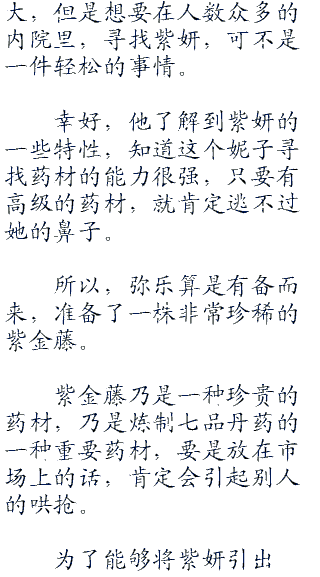 大，但是想要在人数众多的
内院里，寻找紫妍，可不是
一件轻松的事情。
幸好，他了解到紫妍的
一些特性，知道这个妮子寻
找药材的能力很强，只要有
高级的药材，就肯定逃不过
她的鼻子。
所以，弥乐算是有备而
来，准备了一株非常珍稀的
紫金藤。
紫金藤乃是一种珍贵的
药材，乃是炼制七品丹药的
一种重要药材，要是放在市
场上的话，肯定会引起别人
的哄抢。
为了能够将紫妍引出